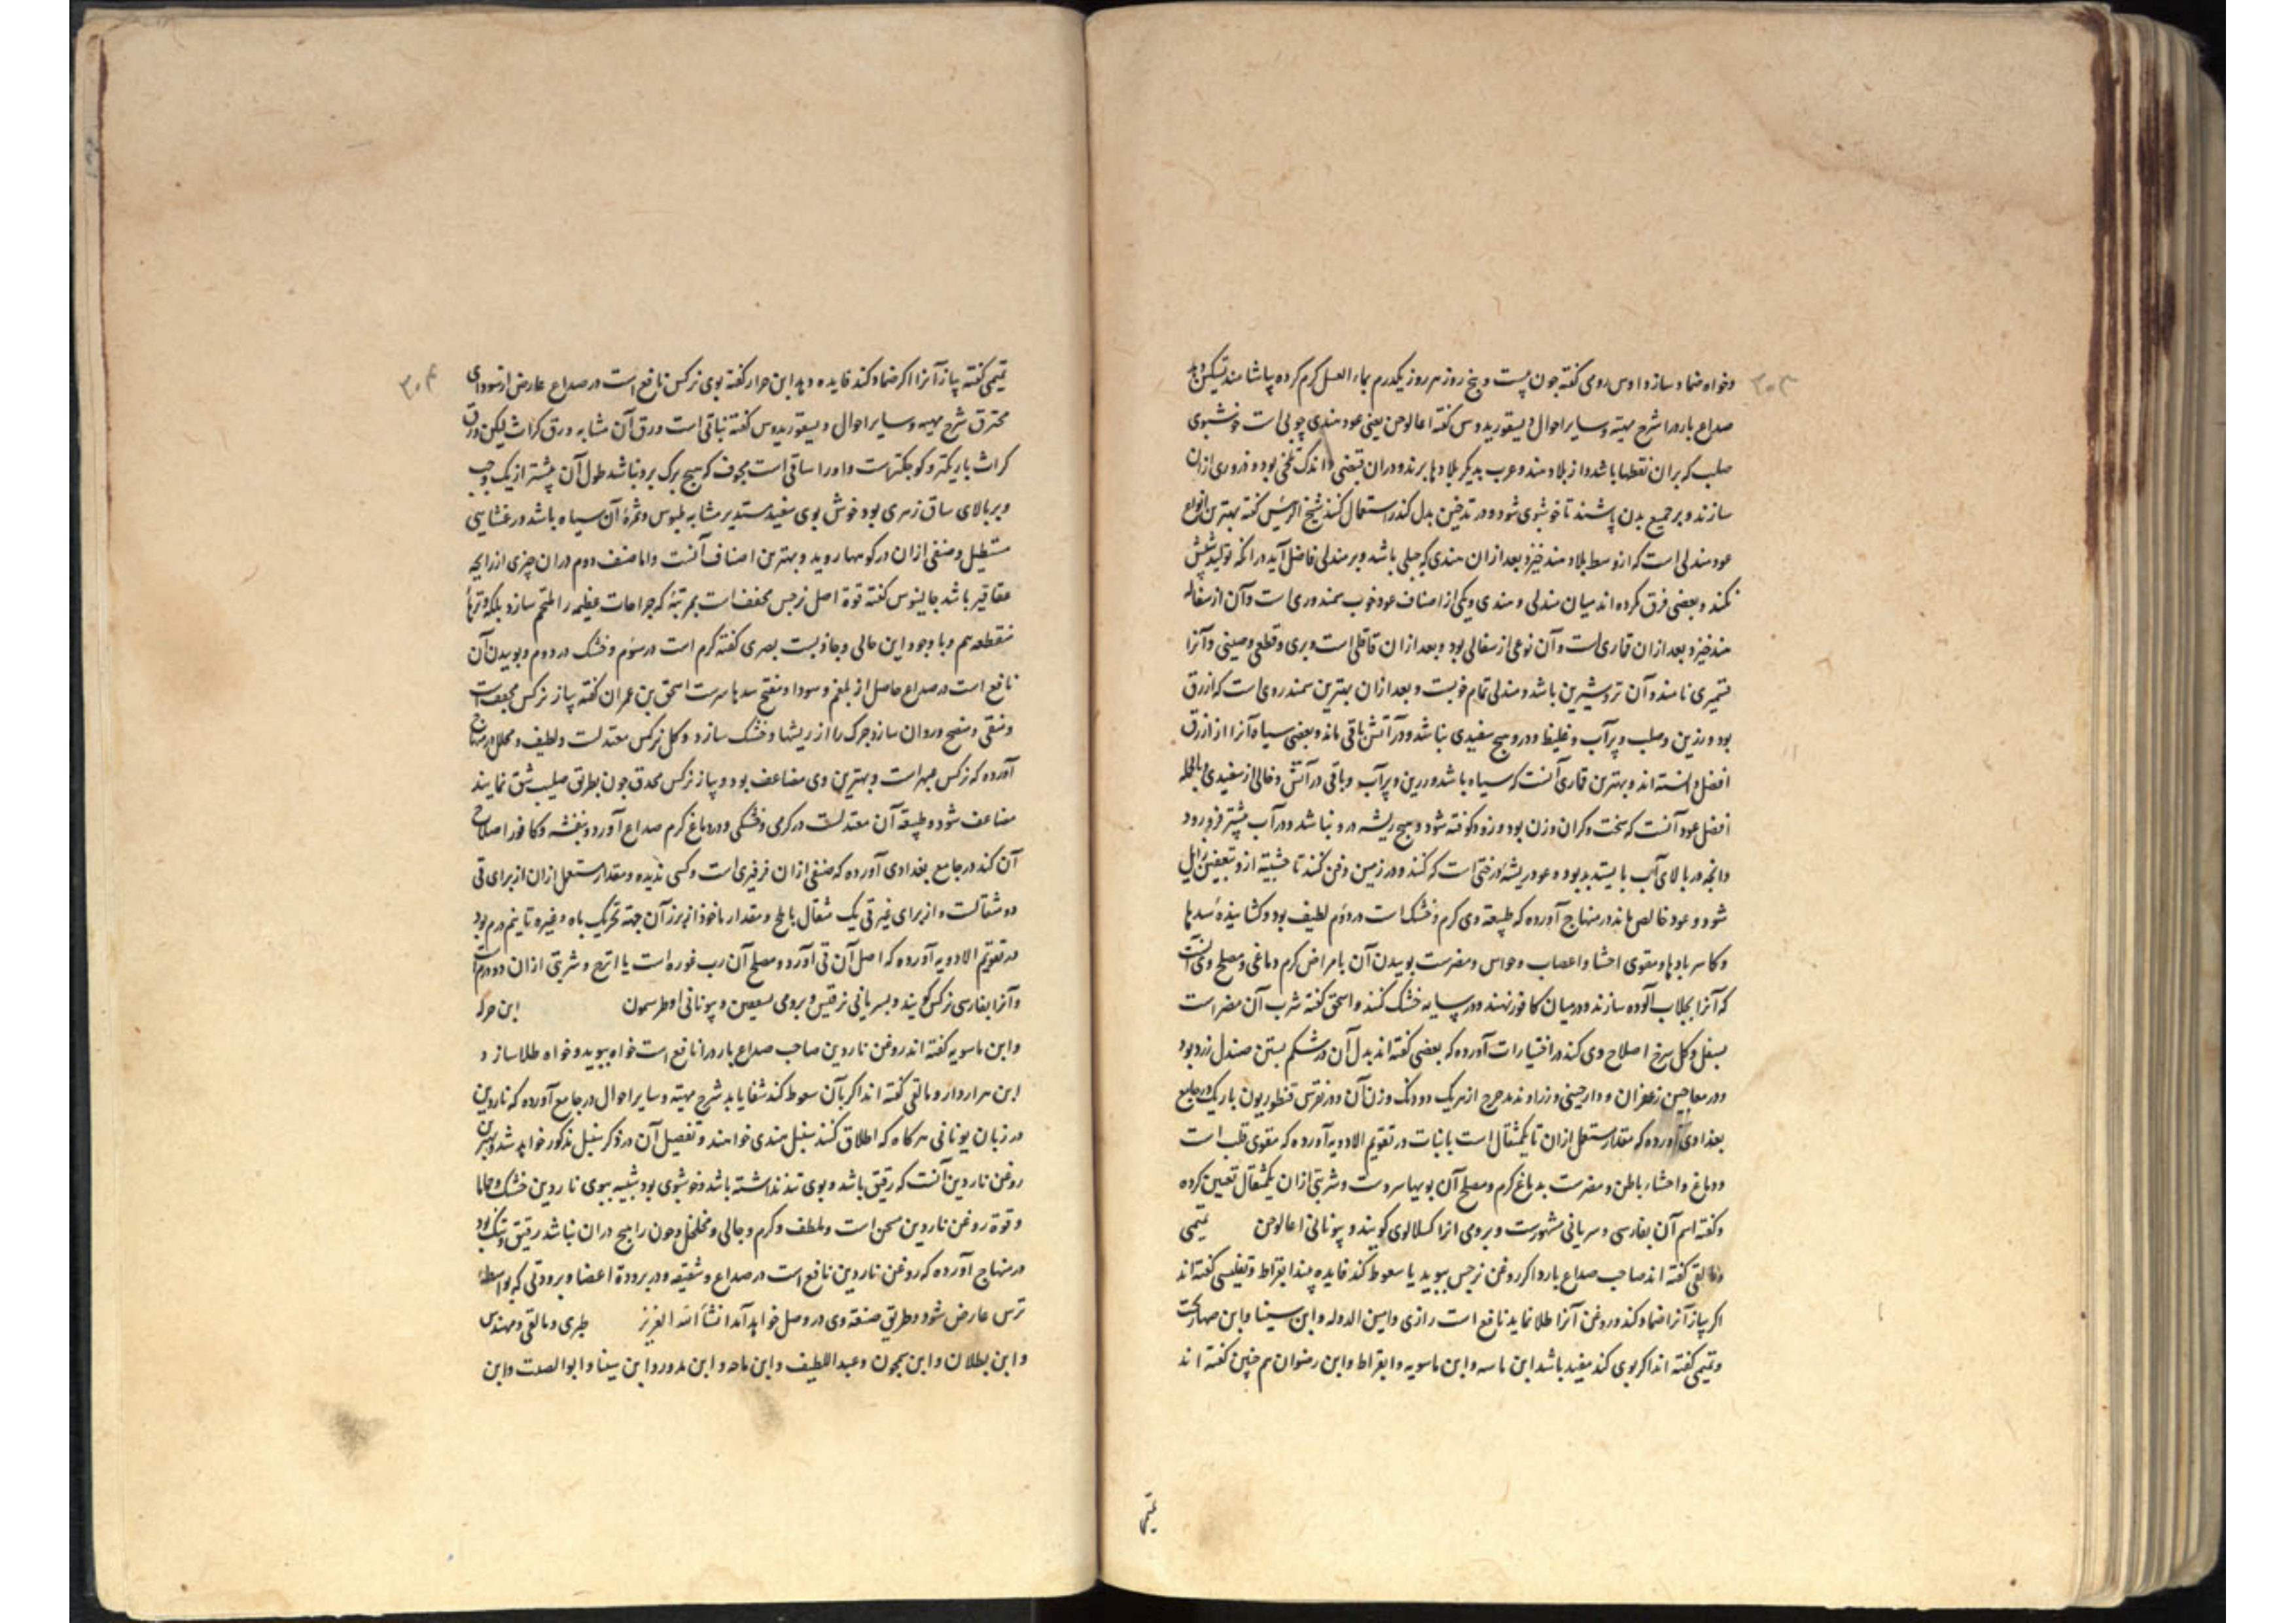 ۳۰۳
وخواه ضماد سازد اوس رومی کفته جون بیست و پنج روز هر روز یکدرم بماء العسل کرم کرده بیاشامند تسکین دهد
صداع بارد را شرح مهیة وسایر احوال دیسقوریدوس کفته اعالوجن یعنی عود هندی چوبی است خوشبوی
صلب که بران نقطها باشد و از بلاد هند و عرب بدیکر بلادها برند و دران قبضی و اندک تلخی بود و ذروری ازان
سازند و بر جمیع بدن پاشند تا خوشبوی شود و در تدخین بدل کندر استعمال کنند شیخ الرئیس کفته بهترین انواع
عود مندلی است که از وسط بلاد هند خیزد و بعد ازان هندی که جبلی باشد و بر مندلی فاضل آید در انکه تولید شپش
نکند و بعضی فرق کرده اند میان مندلی و هندی ویکی از اصناف عود خوب سمندوری است وآن از سفاله
هند خیزد و بعد ازان قماری است وآن نوعی از سفالی بود و بعد ازان قاقلی است و بری و قطعی وصینی وآنرا
قشمیری نامند وآن تر وشیرین باشد ومندلی تمام خوبست و بعد ازان بهترین سمندروی است که ازرق
بود ورزین وصلب وپرآب وغلیظ ودرو هیچ سفیدی نباشد ودر آتش باقی ماند وبعضی سیاه آنرا از ازرق
افضل دانسته اند وبهترین قماری آنست که سیاه باشد ورزین وپرآب وباقی در آتش وخالی از سفیدی وبالجمله
افضل عود آنست که سخت وکران وزن بود وزود کوفته شود وهیچ ریشه درو نباشد ودر آب بیشتر فرو رود
وانچه در بالای آب بایستد بد بود وعود ریشه درختی است که کنند ودر زمین دفن کنند تا خشبیته ازو بتعفین زایل
شود وعود خالص ماند در منهاج آورده که طبیعة وی کرم وخشک است در دوم لطیف بود وکشاینده سدها
وکاسر بادها ومقوی احشا واعصاب وحواس ومضرست بوییدن آن بامراض کرم دماغی ومصلح وی آنست
که آنرا بجلاب آلوده سازند ودر میان کافور نهند ودر سایه خشک کنند واسحق کفته شرب آن مضر است
بسفل وکل سرخ اصلاح وی کند در اختیارات آورده که بعضی کفته اند بدل آن در شکم بستن صندل زرد بود
ودر معاجین زعفران ودارچینی وزراوند مدحرج از هریک دو دانک وزن آن ودر نقرس قنطوریون باریک در جامع
بغدادی آورده که مقدار مستعمل ازان تا یکمثقال است با نبات در تقویم الادویه آورده که مقوی قلب است
ودماغ واحشاء باطن ومضرست بدماغ کرم ومصلح آن بویهاء سردست وشربتی ازان یکمثقال تعیین کرده
وکفته اسم آن بفارسی وسریانی مشهورست وبرومی انرا کسلالوی کویند وبیونانی اعالوجن تمیمی
ومالقی کفته اند صاحب صداع بارد اکر روغن نرجس ببوید یا سعوط کند فایده بیند ابقراط وتفلیسی کفته اند
اکر پیاز آنرا ضماد کند وروغن آنرا طلا نماید نافع است رازی وامین الدوله وابن سینا وابن صهاربخت
وتمیمی کفته اند اکر بوی کند مفید باشد ابن ماسه وابن ماسویه وابقراط وابن رضوان هم چنین کفته اند
تمیمی
۳۰۴
تمیمی کفته پیاز آنرا اکر ضماد کند فایده دهد ابن جزار کفته بوی نرکس نافع است در صداع عارض از سودای
محترق شرح مهیه وسایر احوال دیسقوریدوس کفته نباتی است ورق آن مشابه ورق کراث لیکن ورق
کراث باریکتر وکوچکترست واورا ساقی است مجوف که هیچ برک برو نباشد طول آن بیشتر از یک وجب
وبر بالای ساق زهری بود خوش بوی سفید مستدیر مشابه بلبوس وثمره آن سیاه باشد در غشایی
مستطیل وصنفی ازان در کوهها روید وبهترین اصناف آنست واما صنف دوم دران چیزی از رایحه
عقاقیر باشد جالینوس کفته قوة اصل نرجس مجفف است بمرتبه که جراحات عظیمه را ملتحم سازد بلکه وترهاء
منقطعه هم وبا وجود این جالی وجاذبست بصری کفته کرم است در سوم وخشک در دوم وبوییدن آن
نافع است در صداع حاصل از بلغم وسودا ومفتح سدهاء سرست اسحق بن عمران کفته پیاز نرکس مجفف است
ومنقی ومنضج وروان سازد چرک را از ریشها وخشک سازد وکل نرکس معتدلست ولطیف ومحلل در منهاج
آورده که نرکس عبهر است وبهترین وی مضاعف بود وپیاز نرکس محدق جون بطریق صلیب شق نمایند
مضاعف شود وطبیعة آن معتدلست در کرمی وخشکی ودر دماغ کرم صداع آورد وبنفشه وکافور اصلاح
آن کند در جامع بغدادی آورده که صنفی ازان فرفیری است وکسی ندیده ومقدار مستعمل ازان از برای قی
دو مثقالست واز برای غیر قی یک مثقال با ملح ومقدار ماخوذ از بزر آن جهة تحریک باه وغیره تا نیم درم بود
در تقویم الادویه آورده که اصل آن قی آورد ومصلح آن رب غوره است یا اترج وشربتی ازان دو درم است
وآنرا بفارسی نرکس کویند وبسریانی نرقیس وبرومی بسعیین وبیونانی اوطرسمون ابن جزله
وابن ماسویه کفته اند روغن ناردین صاحب صداع بارد را نافع است خواه ببوید وخواه طلا سازد
ابن هراردار ومالقی کفته اند اکر بآن سعوط کند شفا یابد شرح مهیته وسایر احوال در جامع آورده که ناردین
در زبان یونانی هرکاه که اطلاق کنند سنبل هندی خواهند وتفصیل آن در ذکر سنبل مذکور خواهد شد وبهترین
روغن ناردین آنست که رقیق باشد وبوی تند نداشته باشد وخوشبوی بود شبیه ببوی ناردین خشک وحاما
وقوة روغن ناردین مسخن است وملطف وکرم وجالی ومخلخل وجون راتیج دران نباشد رقیق وتنک بود
در منهاج آورده که روغن ناردین نافع است در صداع وشقیقه ودر برودة اعضا وبرودتی که بواسطه
ترس عارض شود وطریق صنعة وی در وصل خواهد آمد انشاء الله العزیز طبری ومالقی ومهندس
وابن بطلان وابن سمجون وعبد اللطیف وابن ماجه وابن مدور وابن سینا وابو الصلت وابن